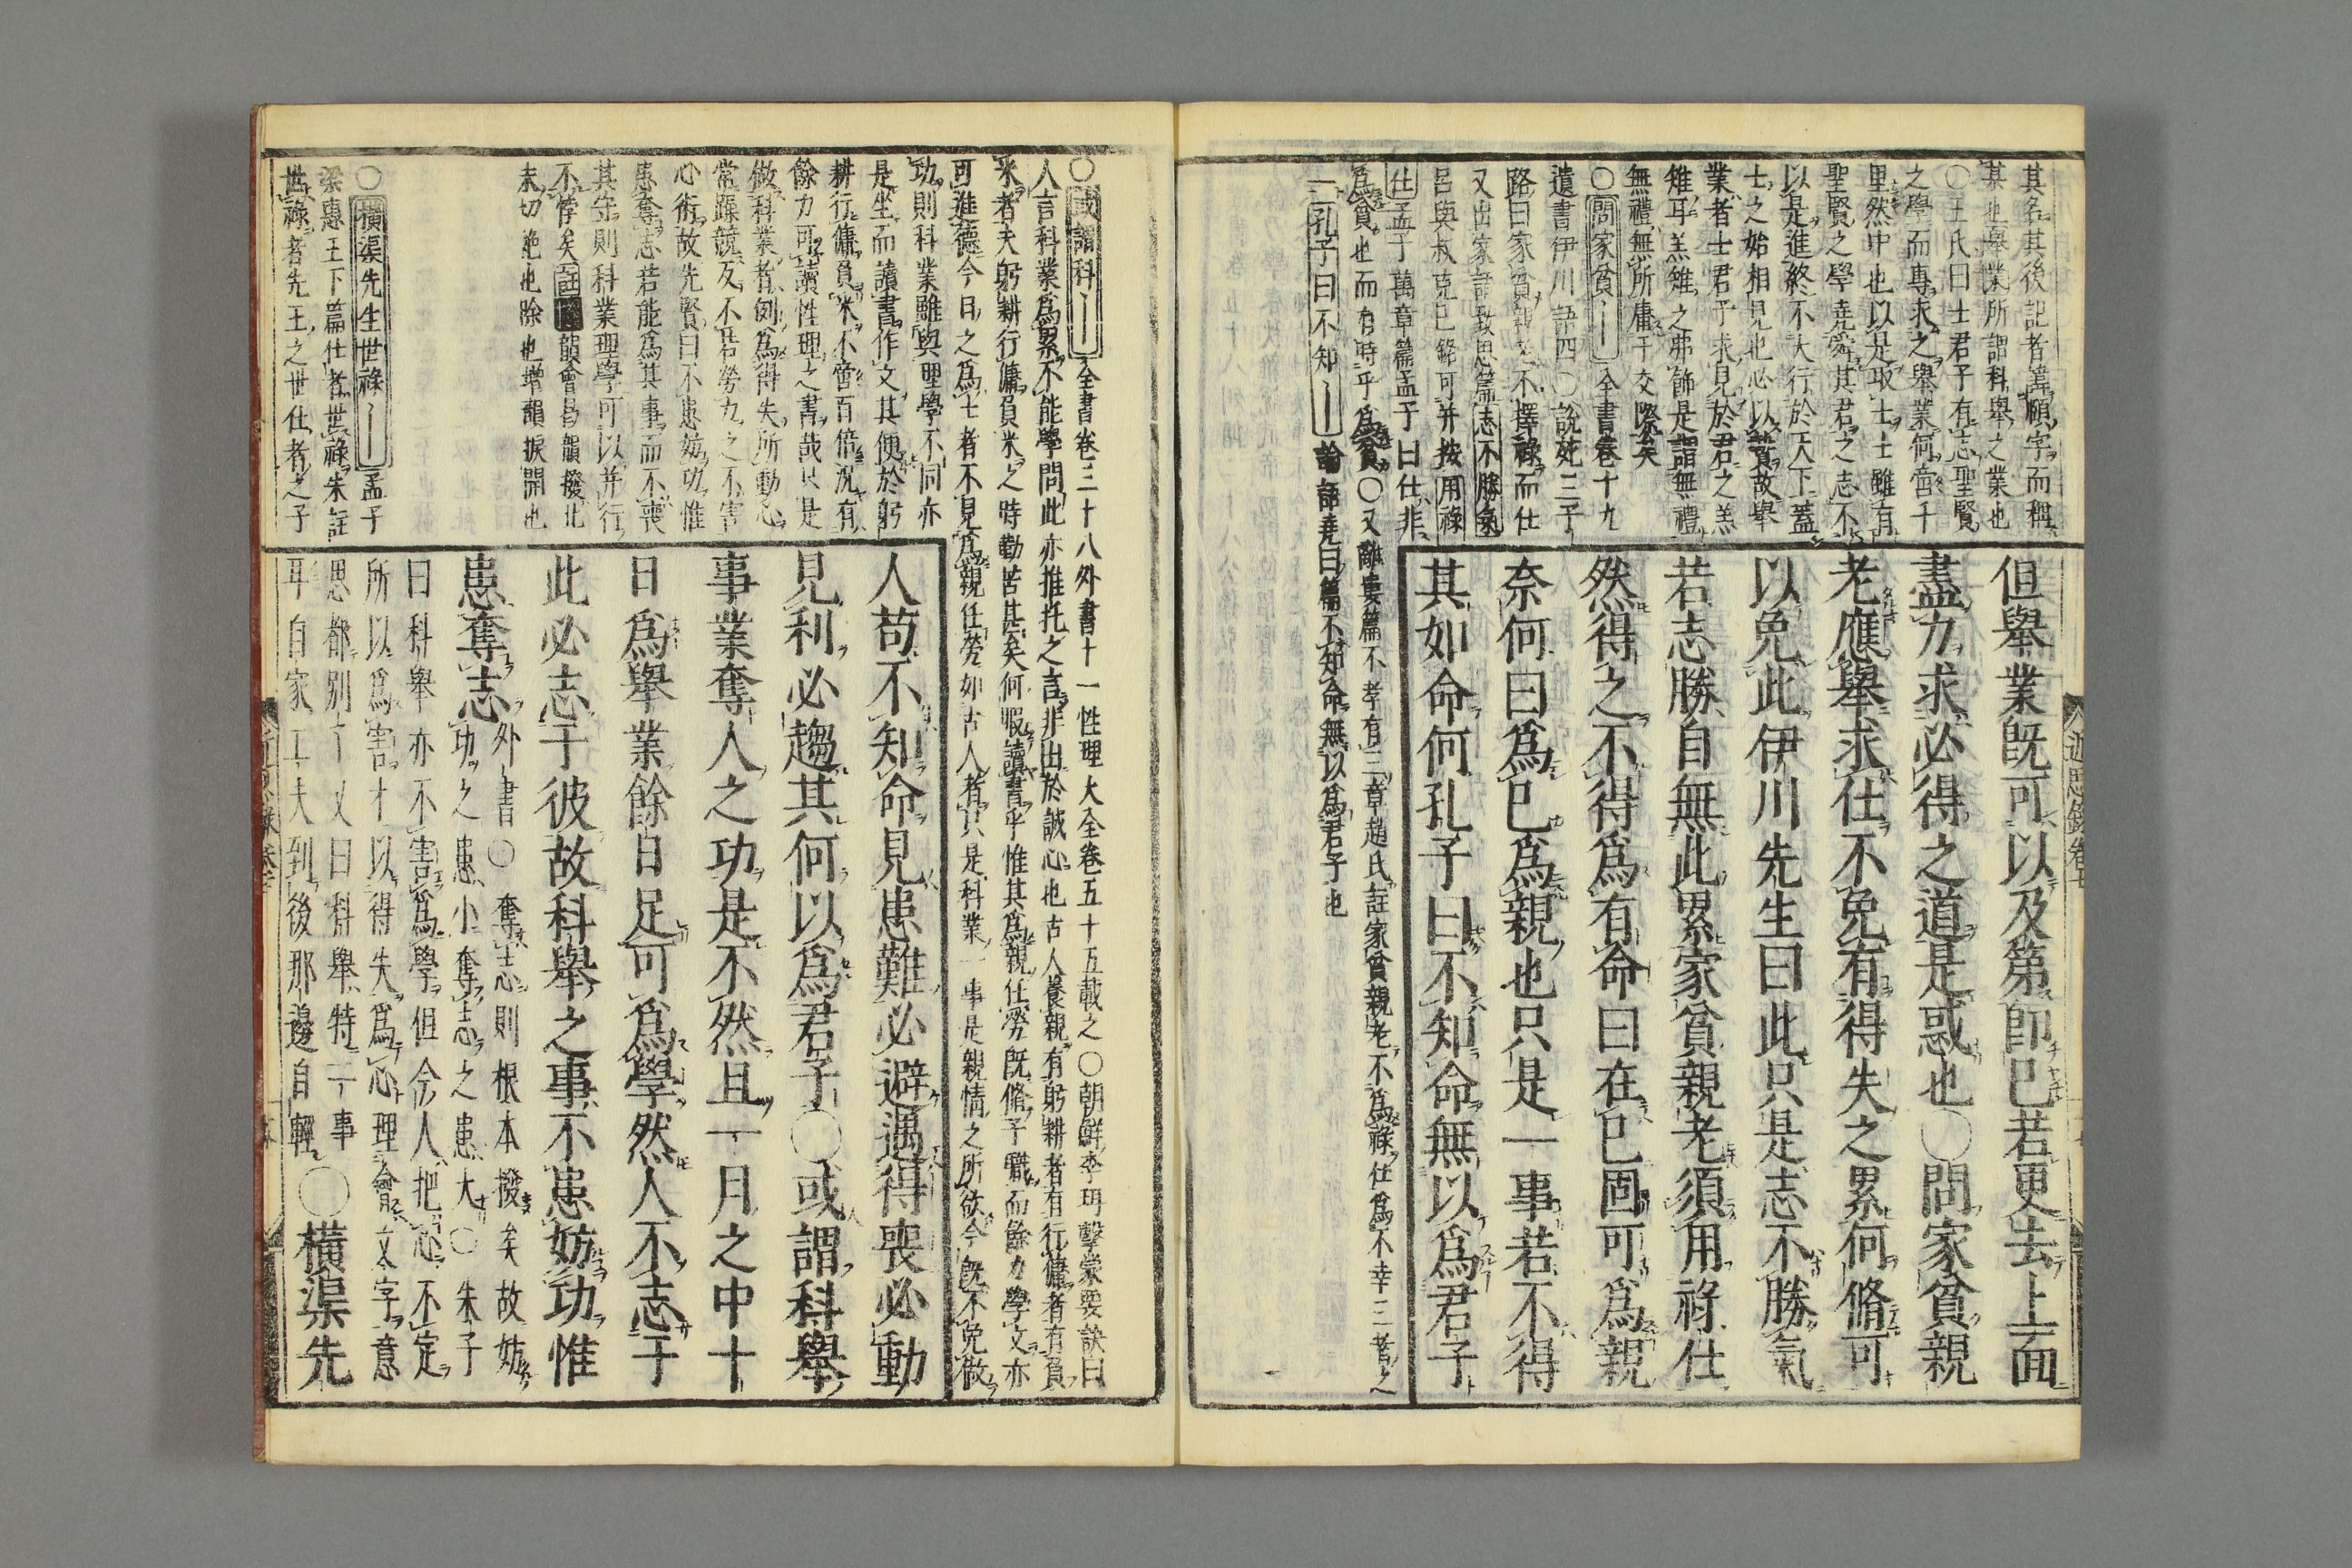 其名其後記者篤願字而稱
某也舉業所謂科舉之業也
○王氏曰士君子有志聖賢
之學而專求之舉業何啻千
里然中也以是取士士雖有
聖賢之學堯舜其君之志不
以是進終不大行於天下蓋
士之始相見也必以贄故舉
業者士君子求見於君之羔
雉耳羔雉之弗飾是謂無禮
無禮無所庸于交際矣
○問家貧〡全書卷十九
遺書伊川語四○說苑三子
路曰家貧親老不擇祿而仕
又出家語致思篇志不勝氣
呂與叔克己銘可并按用祿
仕孟子萬章篇孟子曰仕非
爲貧也而有時乎爲貧○又離婁篇不孝有三章趙氏註家貧親老不爲祿仕爲不幸三者之
一孔子曰不知〡論語堯曰篇不知命無以爲君子也
但舉業既可以及第即已若更去上面
盡力求必得之道是惑也○問家貧親
老應舉求仕不免有得失之累何脩可
以免此伊川先生曰此只是志不勝氣
若志勝自無此累家貧親老須用祿仕
然得之不得爲有命曰在已固可爲親
奈何曰爲已爲親也只是一事若不得
其如命何孔子曰不知命無以爲君子
近思錄卷七
○或謂科〡全書卷三十八外書十一性理大全卷五十五載之○朝鮮李珥擊蒙要訣曰
人言科業爲累不能學問此亦推托之言非出於誠心也古人養親有躬耕者有行傭者有負
米者夫躬耕行傭負米之時勤苦甚矣何暇讀書乎惟其爲親任勞既脩子職而餘力學文亦
可進德今日之爲士者不見爲親任勞如古人者只是科業一事是親情之所欲今既不免做
功則科業雖與理學不同亦
是坐而讀書作文其便於躬
耕行傭負米不啻百倍況有
餘力可讀性理之書哉只是
做科業者例爲得失所動心
常躁競反不若勞力之不害
心術故先賢曰不患妨功惟
患奪志若能爲其事而不喪
其守則科業理學可以并行
不悖矣註 韻會曷韻撥北
末切絶也除也增韻捩開也
○橫渠先生世祿〡孟子
梁惠王下篇仕者世祿朱註
世祿者先王之世仕者之子
人苟不知命見患難必避遇得喪必動
見利必趨其何以爲君子○或謂科舉
事業奪人之功是不然且一月之中十
日爲舉業餘日足可爲學然人不志于
此必志于彼故科舉之事不患妨功惟
患奪志外書○奪志則根本撥矣故妨
功之患小奪志之患大○朱子
曰科舉亦不害爲學但今人把心不定
所以爲害才以得失爲心理會文字意
思都別了又曰科舉特一事
耳自家工夫到後那邊自輕○橫渠先